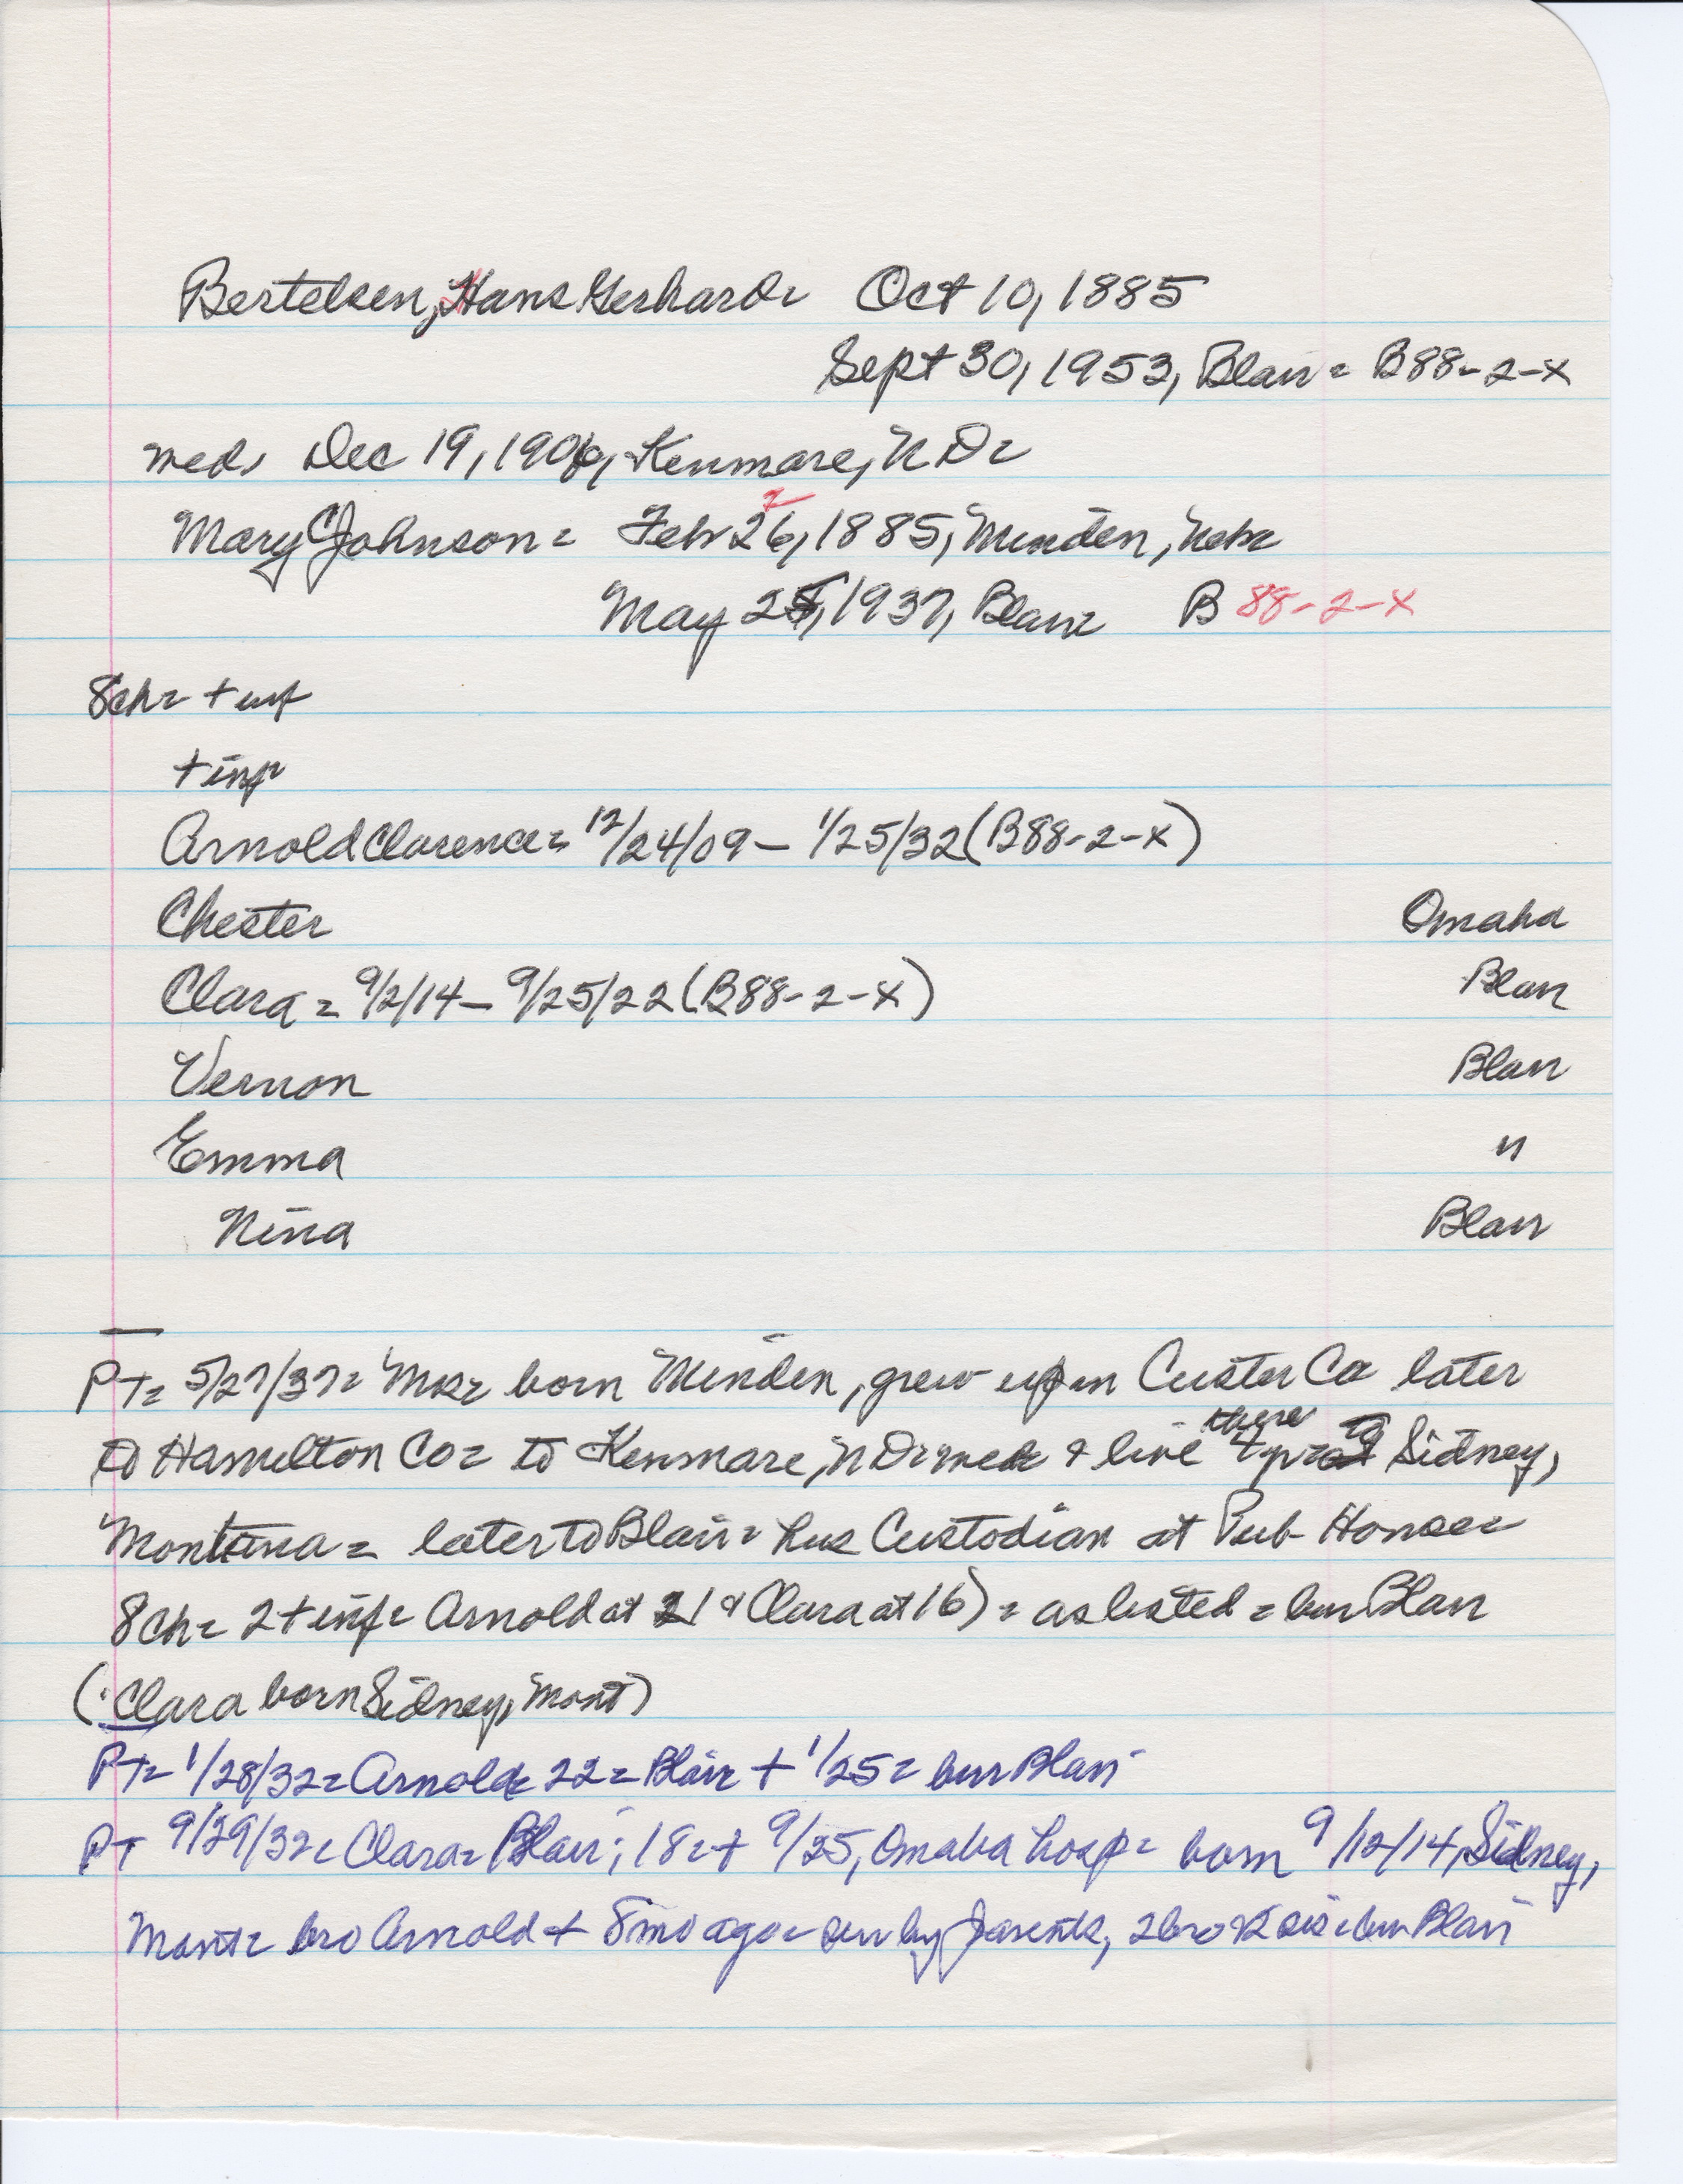 Bertelsen, Hans Gerhard= Oct 10, 1885
Sept 30, 1953, Blair= B88-2-X
med, Dec 19, 1906, Kenmare, ND=
2
Mary C Johnson= Feb 26, 1885, Minden, Nebr
May 25, 1937, Blair= B 88-2-X
8ch= + inf
+ inf=
Arnold Clarence= 12/24/09 - 1/25/32 (B88-2-X)
Chester Omaha
Clara= 9/2/14 - 9/25/22 (B88-2-X) Blair
Vernon Blair
Emma "
Nina Blair
PT= 5/27/37= Mrs= born Minden, grew up in Custer Co later
there to
to Hamilton Co= to Kenmare, ND= med & live 4 yrs Sidney,
Montana= later to Blair= hus Custodian at Pub House=
8ch= 2 + inf= Arnold at 21 & Clara at 16) = as listed = bur Blair
(Clara born Sidney, Mont)
PT= 1/28/32= Arnold= 22= Blair + 1/25= bur Blair
PT 9/29/32= Clara= Blair; 18= + 9/25, Omaha hosp= born 9/12/14, Sidney,
Mont= bro Arnold + 8 mo ago= sur by parents, 2 bro & 2 sis= bur Blair